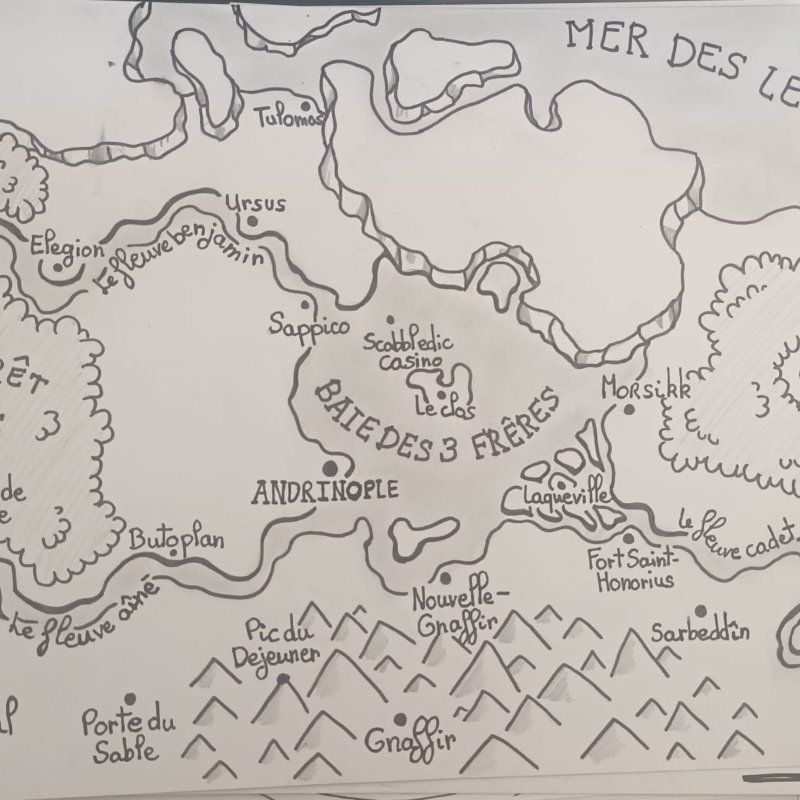 MER DES LE
Tulomas
Ursus
Elegion
Le fleuve benjamin
Sappico
Scobbledic
Casino
Le clos
RÊT
BAIE DES 3 FRÈRES
MORSIKK
ANDRINOPLE
Laqueville
de
e
Butoplan
Le fleuve cadet
Fort Saint-
Honorius
Le fleuve aîné
Nouvelle-
Gnaffir
Pic du
Dejeuner
Sarbeddîn
Porte du
Sable
Gnaffir